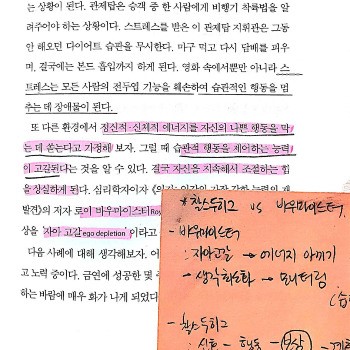 는 상황이 된다. 관제탑은 승객 중 한 사람에게 비행기 착륙법을 알
려주어야 하는 상황이다. 스트레스를 받은 이 관제탑 지휘관은 그동
안 해오던 다이어트 습관을 무시한다. 마구 먹고 다시 담배를 피우
며, 결국에는 본드 흡입까지 하게 된다. 영화 속에서뿐만 아니라 스
트레스는 모든 사람의 전두엽 기능을 훼손하여 습관적인 행동을 멈
추는 데 장애물이 된다.
또 다른 환경에서 정신적·신체적 에너지를 자신의 나쁜 행동을 막
는 데 쏟는다고 가정해 보자. 그럴 때 습관적 행동을 제어하는 능력
이 고갈된다는 것을 알 수 있다. 결국 자신을 지속해서 조절하는 힘
을 상실하게 된다. 심리학자이자
발견》의 저자 로이 바우마이스터Roy
상을 '자아 고갈ego depletion'이라고
다음 사례에 대해 생각해보자. 어
고 노력 중이다. 금연에 성공한 몇 주
하는 바람에 매우 화가 나게 되었다
* 찰스두히그 vs 바우마이스터.
- 바우마이스터
: 자아고갈 → 에너지 아끼기
- 생각 활성화 → 모니터링.
- 찰스두히그
: 신호 - 행동 - 보상